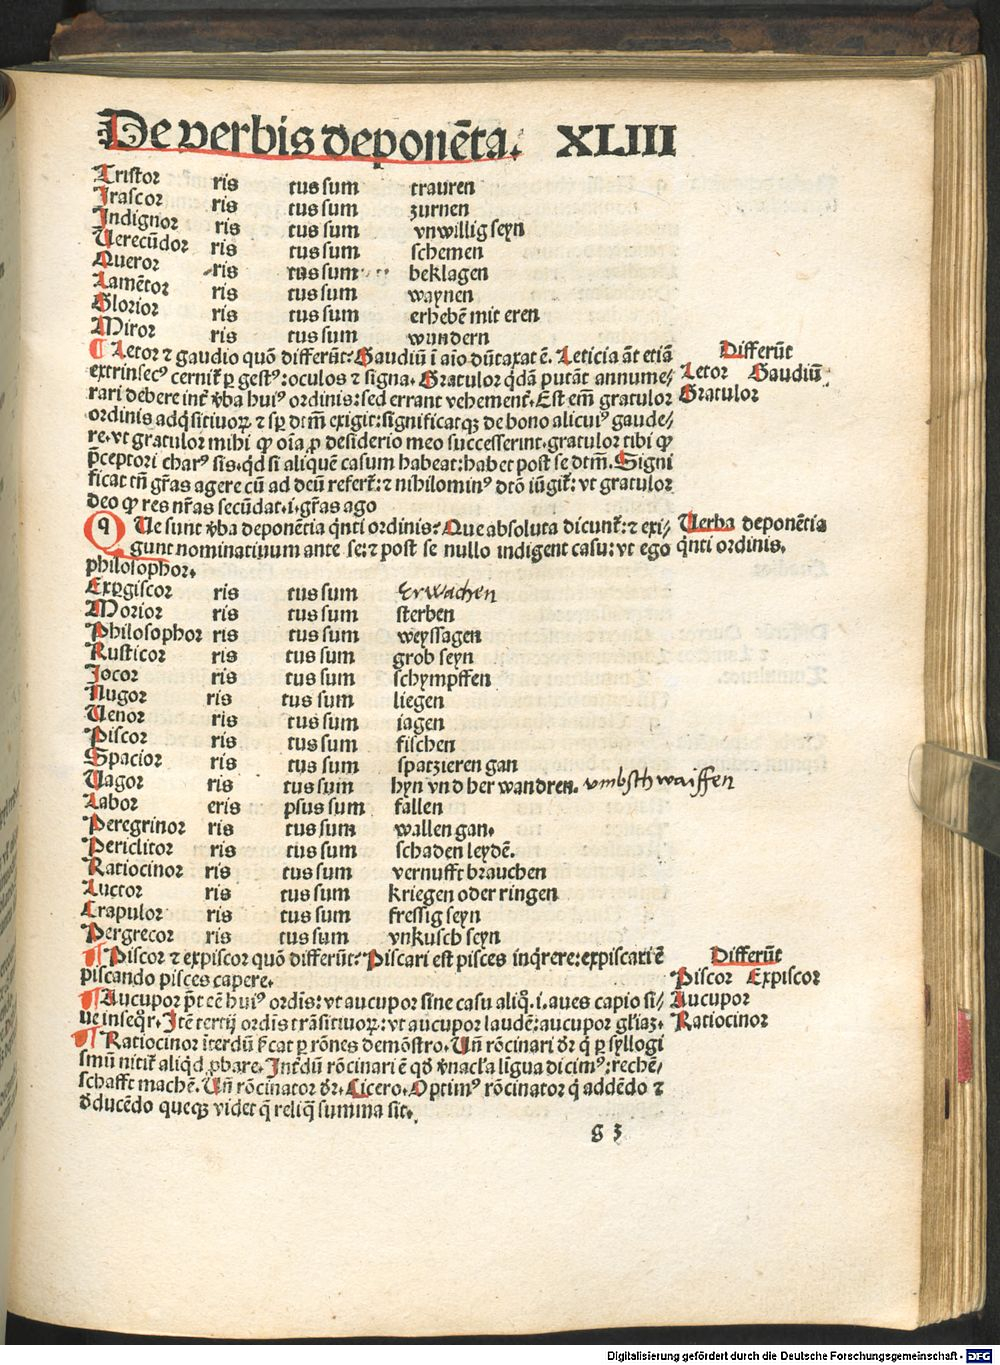 De verbis deponēta. XLIII
Tristor ris tus sum trauren
Irascor ris tus sum zurnen
Indignor ris tus sum vnwillig seyn
Uerecūdor ris tus sum schemen
Queror ris tus sum beklagen
Lamētor ris tus sum waynen
Glorior ris tus sum erhebē mit eren
Miror ris tus sum wundern
¶ Letor ⁊ gaudio quō differūt: Gaudiū ī aīo dūtaxat ē. Leticia āt etiā
Differūt
extrinsecꝰ cernit᷑ ꝑ gestꝰ: oculos ⁊ signa. Gratulor q̇dā putāt annume/
Letor Gaudiū
rari debere int᷑ v̄ba huiꝰ ordinis: sed errant vehement᷑. Est em̄ gratulor
Gratulor
ordinis adq̇sitiuoꝝ ⁊ sꝑ dtm̄ exigit: significatqꝫ de bono alicuiꝰ gaude/
re. vt gratulor mihi ꝙ oīa ꝓ desiderio meo successerint. gratulor tibi ꝙ
p̄ceptori charꝰ sis. qd si aliquē casum habeat: habet post se dtm̄. Signi
ficat tn̄ gr̄as agere cū ad deū refert᷑: ⁊ nihilominꝰ dtō iūgit᷑: vt gratulor
deo ꝙ res nr̄as secūdat. i. gr̄as ago
Que sunt v̄ba deponētia q̇nti ordinis? Que absoluta dicunt᷑: ⁊ exi-
Uerba deponētia
gunt nominatiuum ante se: ⁊ post se nullo indigent casu: vt ego
q̇nti ordinis.
philosophor.
Exꝑgiscor ris tus sum Erwachen
Morior ris tus sum sterben
Philosophor ris tus sum weyssagen
Rusticor ris tus sum grob seyn
Jocor ris tus sum schympffen
Nugor ris tus sum liegen
Uenor ris tus sum iagen
Piscor ris tus sum fischen
Spacior ris tus sum spatzieren gan
Uagor ris tus sum hyn vnd her wandren. vmbschwaiffen
Labor eris psus sum fallen
Peregrinor ris tus sum wallen gan.
Periclitor ris tus sum schaden leydē.
Ratiocinor ris tus sum vernufft brauchen
Luctor ris tus sum kriegen oder ringen
Crapulor ris tus sum fressig seyn
Pergrecor ris tus sum vnkusch seyn
¶ Piscor ⁊ expiscor quō differūt: Piscari est pisces inq̇rere: expiscari ē
Differūt
piscando pisces capere.
Piscor Expiscor
¶ Aucupor p̄t eē huiꝰ ordīs: vt aucupor sine casu aliq̊. i. aues capio si/
Aucupor
ue inseq̊r. Itē tertij ordīs trāsitiuoꝝ: vt aucupor laudē: aucupor gl'iaꝫ.
Ratiocinor
¶ Ratiocinor īterdū s̄cat ꝑ rōnes demōstro. Un̄ rōcinari dr̄ q̇ ꝑ syllogi
smū nitit᷑ aliqd ꝓbare. Int᷑dū rōcinari ē qd v̄nacl'a ligua dicimꝰ: rechē/
schafft machē. Uñ rōcinator dr̄. Cicero. Optimꝰ rōcinator q̇ addēdo ⁊
dducēdo queqꝫ videt q̄ reliq̄ summa sit.
g 3
Digitalisierung gefördert durch die Deutsche Forschungsgemeinschaft - DFG